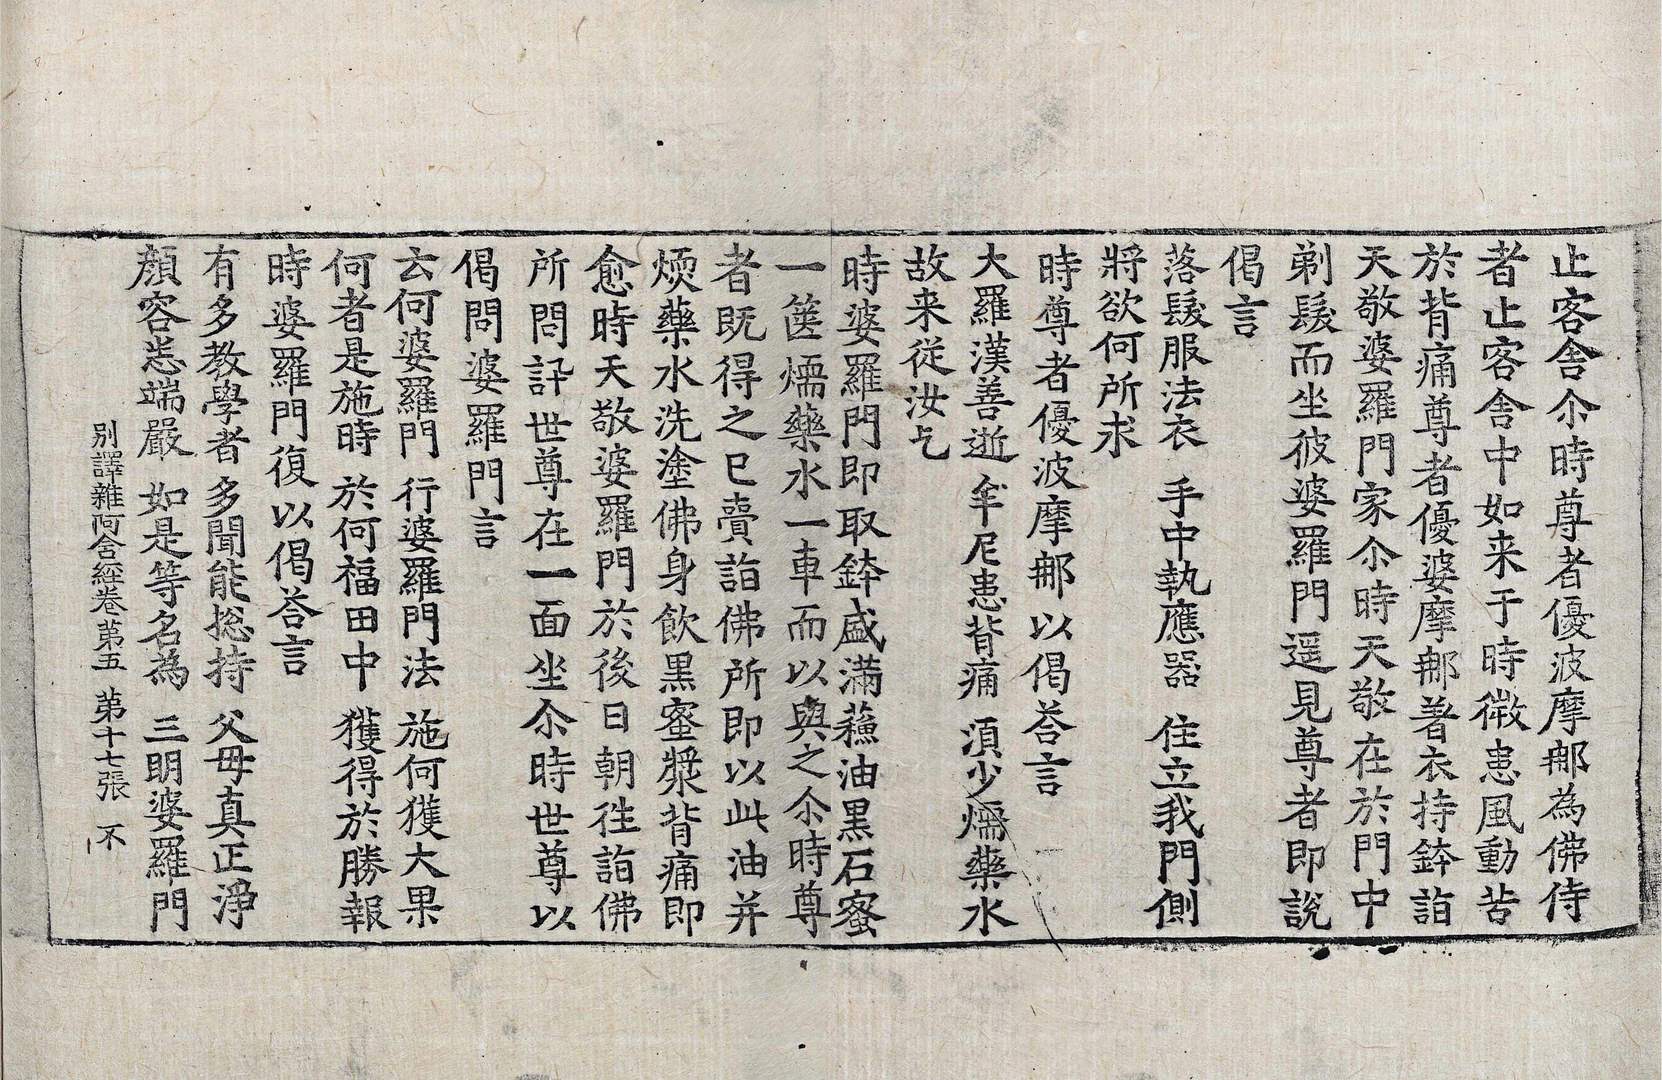 止客舍尒時尊者優波摩𨙻為佛侍
者止客舍中如来于時微患風動苦
於背痛尊者優婆摩𨙻著衣持鉢詣
天敬婆羅門家尒時天敬在於門中
剃髮而坐彼婆羅門遥見尊者即說
偈言
落髮服法衣 手中執應器 住立我門側
將欲何所求
時尊者優波摩𨙻以偈荅言
大羅漢善逝 牟尼患背痛 湏少煗藥水
故来從汝乞
時婆羅門即取鉢盛滿蘓油黒石蜜
一篋煗藥水一車而以與之尒時尊
者既得之已賷詣佛所即以此油并
煗藥水洗塗佛身飲黒蜜漿背痛即
愈時天敬婆羅門於後日朝徃詣佛
所問訊世尊在一面坐尒時世尊以
偈問婆羅門言
云何婆羅門 行婆羅門法 施何獲大果
何者是施時 於何福田中 獲得於勝報
時婆羅門復以偈荅言
有多教學者 多聞能捴持 父母真正淨
顏容悉端嚴 如是等名為 三明婆羅門
別譯雜阿含經卷第五 第十七張 不